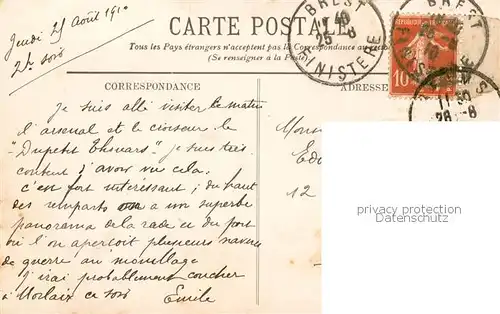 Jeudi 25 Août 1910
2h soir
CARTE POSTALE
Tous les Pays étrangers n'acceptent pas la Correspondance au
(Se renseigner à la Poste)
CORRESPONDANCE
ADRESSE
BREST
25 -8
FINISTERE
BREST
10
28 -8
Je suis allé visiter ce matin
l'arsenal et le croiseur le
"Dupetit Thouars" je suis très
content d'avoir vu cela.
c'est fort intéressant ; du haut
des remparts on a un superbe
panorama de la rade et du port
où l'on aperçoit plusieurs navires
de guerre au mouillage
J'irai probablement coucher
à Morlaix ce soir
Emile
12
privacy protection